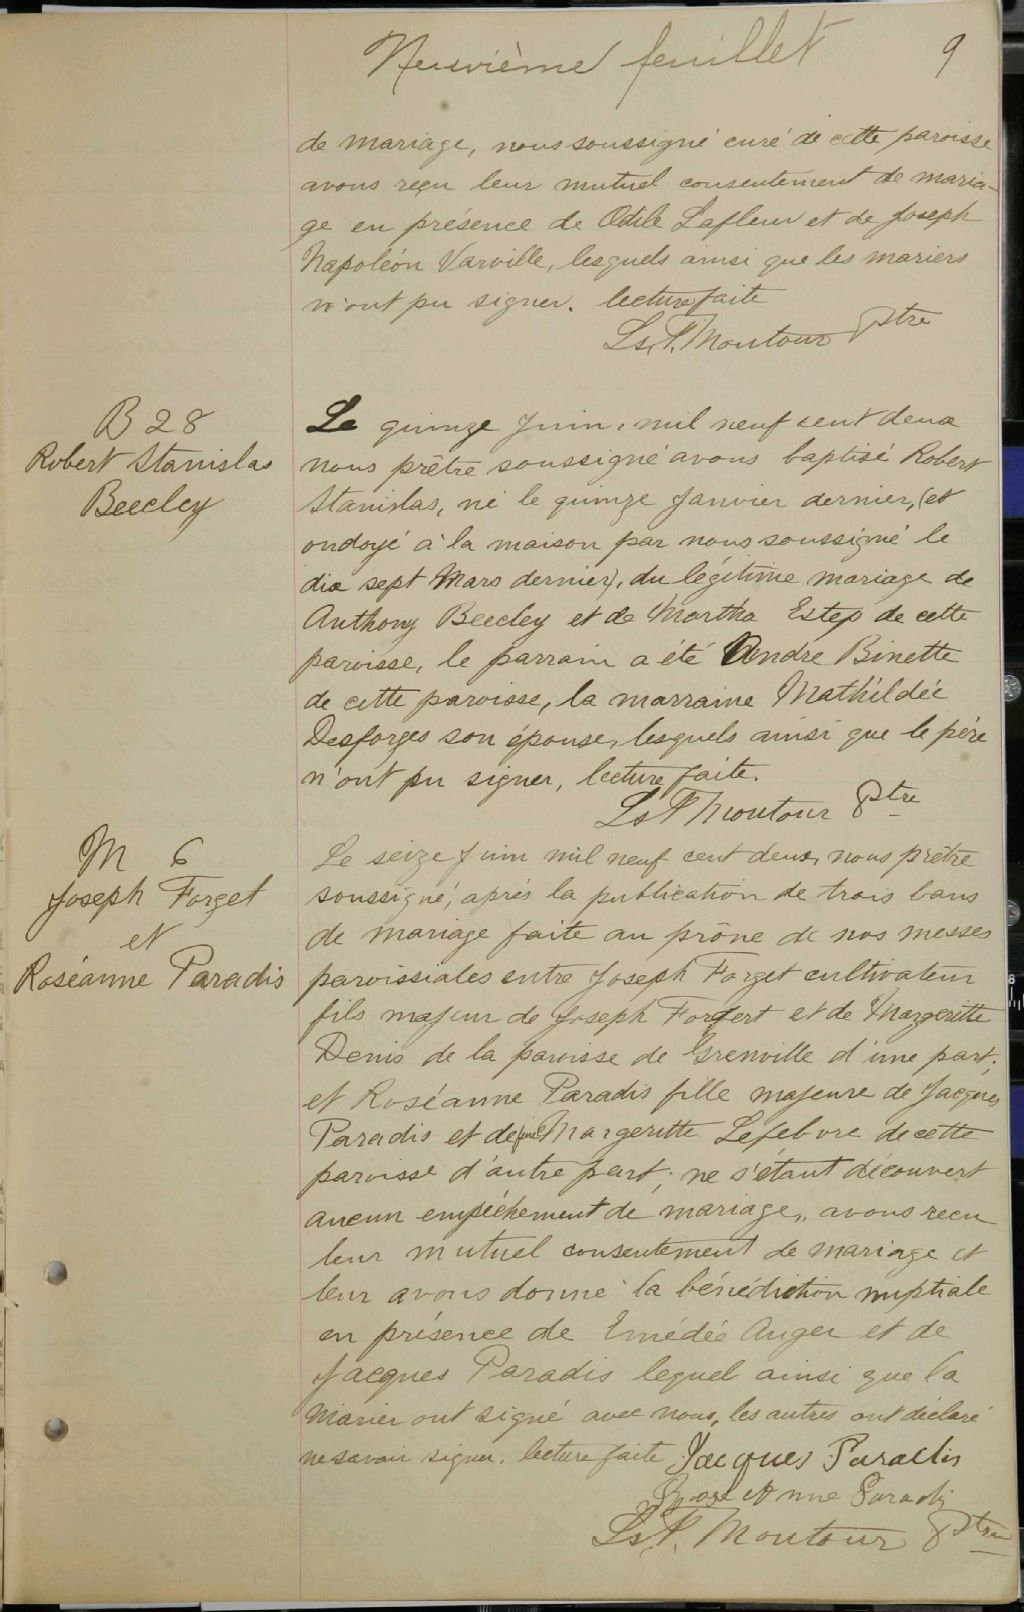 Neuvième feuillet 9
de mariage, nous soussigné curé de cette paroisse
avons reçu leur mutuel consentement de maria-
ge en présence de Odile Lafleur et de Joseph
Napoléon Varville, lesquels ainsi que les mariers
n'ont pu signer. lecture faite
Ls. P. Montour Ptre
B 28
Robert Stanislas
Beecley
Le quinze Juin, mil neuf cent deux
nous prêtre soussigné avons baptisé Robert
Stanislas, né le quinze Janvier dernier, (et
ondoyé à la maison par nous soussigné le
dix sept Mars dernier), du légitime mariage de
Anthony Beecley et de Martha Estep de cette
paroisse, le parrain a été Andre Binette
de cette paroisse, la marraine Mathildée
Desforges son épouse, lesquels ainsi que le père
n'ont pu signer, lecture faite.
Ls P Montour Ptre
M 6
Joseph Forget
et
Roséanne Paradis
Le seize Juin mil neuf cent deux, nous prêtre
soussigné, après la publication de trois bans
de mariage faite au prône de nos messes
paroissiales entre Joseph Forget cultivateur
fils majeur de Joseph Forgert et de Margeritte
Denis de la paroisse de Grenville d'une part;
et Roséanne Paradis fille majeure de Jacques
Paradis et de feue Margeritte Lefebvre de cette
paroisse d'autre part; ne s'étant découvert
aucun empêchement de mariage, avons recu
leur mutuel consentement de mariage et
leur avons donné la bénédiction nuptiale
en présence de Emédée Auger et de
Jacques Paradis lequel ainsi que la
Marier ont signé avec nous, les autres ont déclaré
ne savoir signer. lecture faite Jacques Paradis
Rose Anne Paradis
Ls P. Montour Ptre